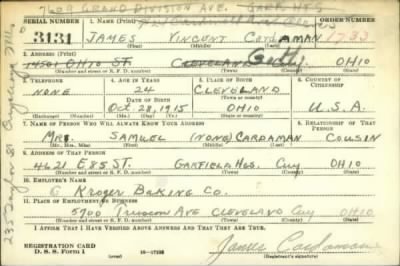 7609 GRAND DIVISION AVE. GARF. HGS
SERIAL NUMBER
1. NAME (Print)
3131 JAMES VINCENT CARDAMAN 1733
(First) (Middle) (Last)
2. ADDRESS (Print)
14501 OHIO ST. CLEVELAND Cuy. OHIO
(Number and street or R. F. D. number) (Town) (County) (State)
3. TELEPHONE 4. AGE IN YEARS 5. PLACE OF BIRTH 6. COUNTRY OF CITIZENSHIP
NONE 24 CLEVELAND
DATE OF BIRTH (Town or county)
Oct. 28, 1915 OHIO U.S.A.
(Mo.) (Day) (Yr.) (State or country)
7. NAME OF PERSON WHO WILL ALWAYS KNOW YOUR ADDRESS 8. RELATIONSHIP OF THAT PERSON
MRS. SAMUEL (NONE) CARDAMAN COUSIN
(Mr., Mrs., Miss) (First) (Middle) (Last)
9. ADDRESS OF THAT PERSON
4621 E 85 ST. GARFIELD HGS. Cuy OHIO
(Number and street or R. F. D. number) (Town) (County) (State)
10. EMPLOYER'S NAME
KROGER BAKING CO.
11. PLACE OF EMPLOYMENT OR BUSINESS
5700 AVE CLEVELAND Cuy OHIO
(Number and street or R. F. D. number) (Town) (County) (State)
I AFFIRM THAT I HAVE VERIFIED ABOVE ANSWERS AND THAT THEY ARE TRUE.
REGISTRATION CARD
D. S. S. Form 1 (over) 16-17105
James Cardaman
(Registrant's signature)